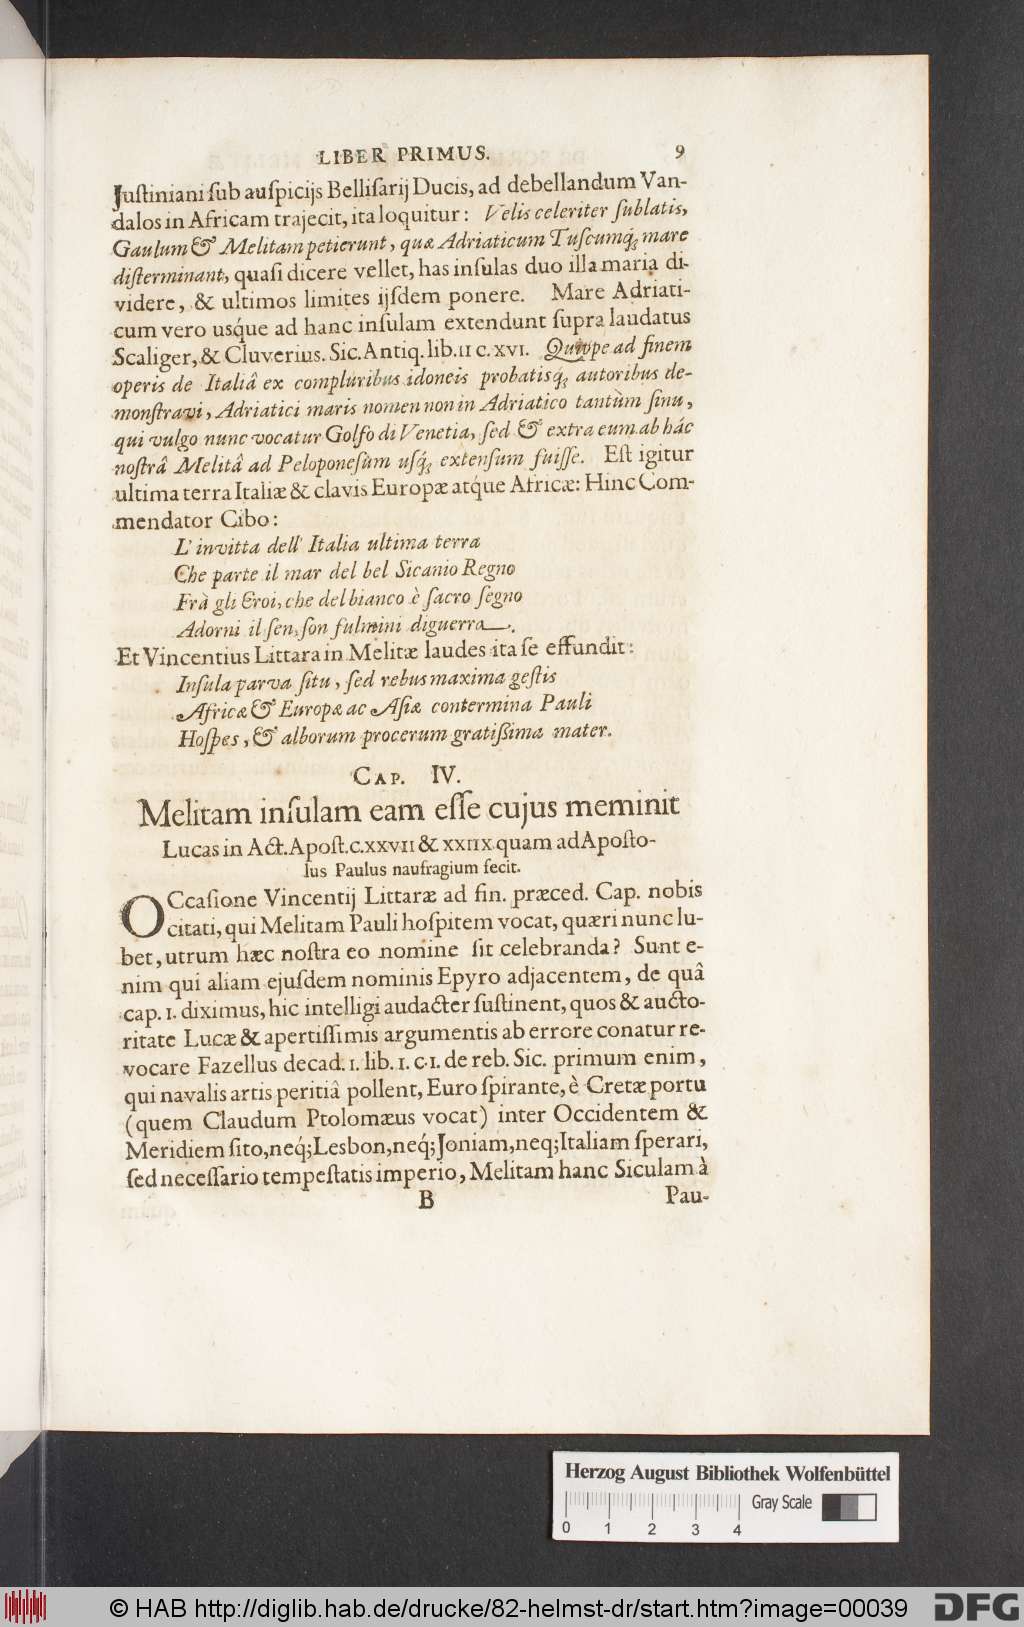 LIBER PRIMUS. 9
Juſtiniani ſub auſpicijs Belliſarij Ducis, ad debellandum Van-
dalos in Africam trajecit, ita loquitur: Velis celeriter ſublatis,
Gaulum & Melitam petierunt, quæ Adriaticum Tuſcumq́; mare
diſterminant, quaſi dicere vellet, has inſulas duo illa maria di-
videre, & ultimos limites ijſdem ponere. Mare Adriati-
cum vero usq́ue ad hanc inſulam extendunt ſupra laudatus
Scaliger, & Cluverius. Sic. Antiq. lib. II c. XVI. Quippe ad finem
operis de Italiâ ex compluribus idoneis probatisq́; autoribus de-
monſtravi, Adriatici maris nomen non in Adriatico tantùm ſinu,
qui vulgo nunc vocatur Golfo di Venetia, ſed & extra eum ab hác
noſtrâ Melitâ ad Peloponeſùm uſq́; extenſum fuiſſe. Eſt igitur
ultima terra Italiæ & clavis Europæ atq́ue Africæ: Hinc Com-
mendator Cibo:
L' invitta dell' Italia ultima terra
Che parte il mar del bel Sicanio Regno
Frà gli Eroi, che del bianco è ſacro ſegno
Adorni il ſen, ſon fulmini diguerra.
Et Vincentius Littara in Melitæ laudes ita ſe effundit:
Inſula parva ſitu, ſed rebus maxima geſtis
Africæ & Europæ ac Aſiæ contermina Pauli
Hoſpes, & alborum procerum gratiſſima mater.
CAP. IV.
Melitam inſulam eam eſſe cujus meminit
Lucas in Act. Apoſt. c. XXVII & XXIIX quam ad Apoſto-
lus Paulus naufragium fecit.
OCcaſione Vincentij Littaræ ad fin. præced. Cap. nobis
citati, qui Melitam Pauli hoſpitem vocat, quæri nunc lu-
bet, utrum hæc noſtra eo nomine ſit celebranda? Sunt e-
nim qui aliam ejuſdem nominis Epyro adjacentem, de quâ
cap. I. diximus, hic intelligi audacter ſuſtinent, quos & aucto-
ritate Lucæ & apertiſſimis argumentis ab errore conatur re-
vocare Fazellus decad. I. lib. I. c. I. de reb. Sic. primum enim,
qui navalis artis peritiâ pollent, Euro ſpirante, è Cretæ portu
(quem Claudum Ptolomæus vocat) inter Occidentem &
Meridiem ſito, neq́; Lesbon, neq́; Joniam, neq; Italiam ſperari,
ſed neceſſario tempeſtatis imperio, Melitam hanc Siculam à
B Pau-
Herzog August Bibliothek Wolfenbüttel
Gray Scale
0 1 2 3 4
© HAB http://diglib.hab.de/drucke/82-helmst-dr/start.htm?image=00039
DFG